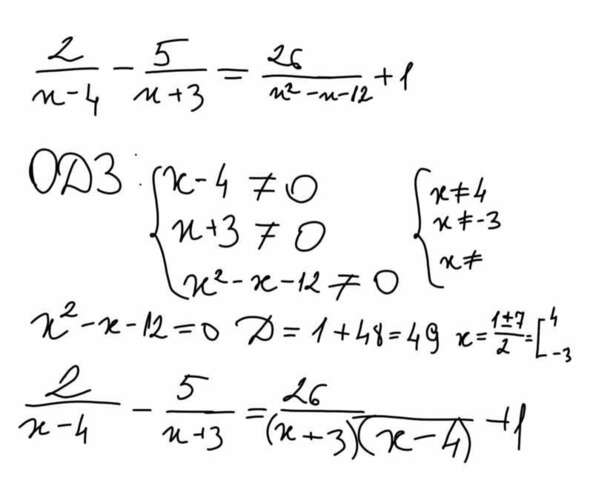 2/(x-4) - 5/(x+3) = 26/(x²-x-12) + 1
ОДЗ: { x-4 ≠ 0 { x ≠ 4
x+3 ≠ 0 x ≠ -3
x²-x-12 ≠ 0 x ≠
x²-x-12=0 D = 1+48=49 x = (1±7)/2 = [ 4 -3
2/(x-4) - 5/(x+3) = 26/((x+3)(x-4)) + 1